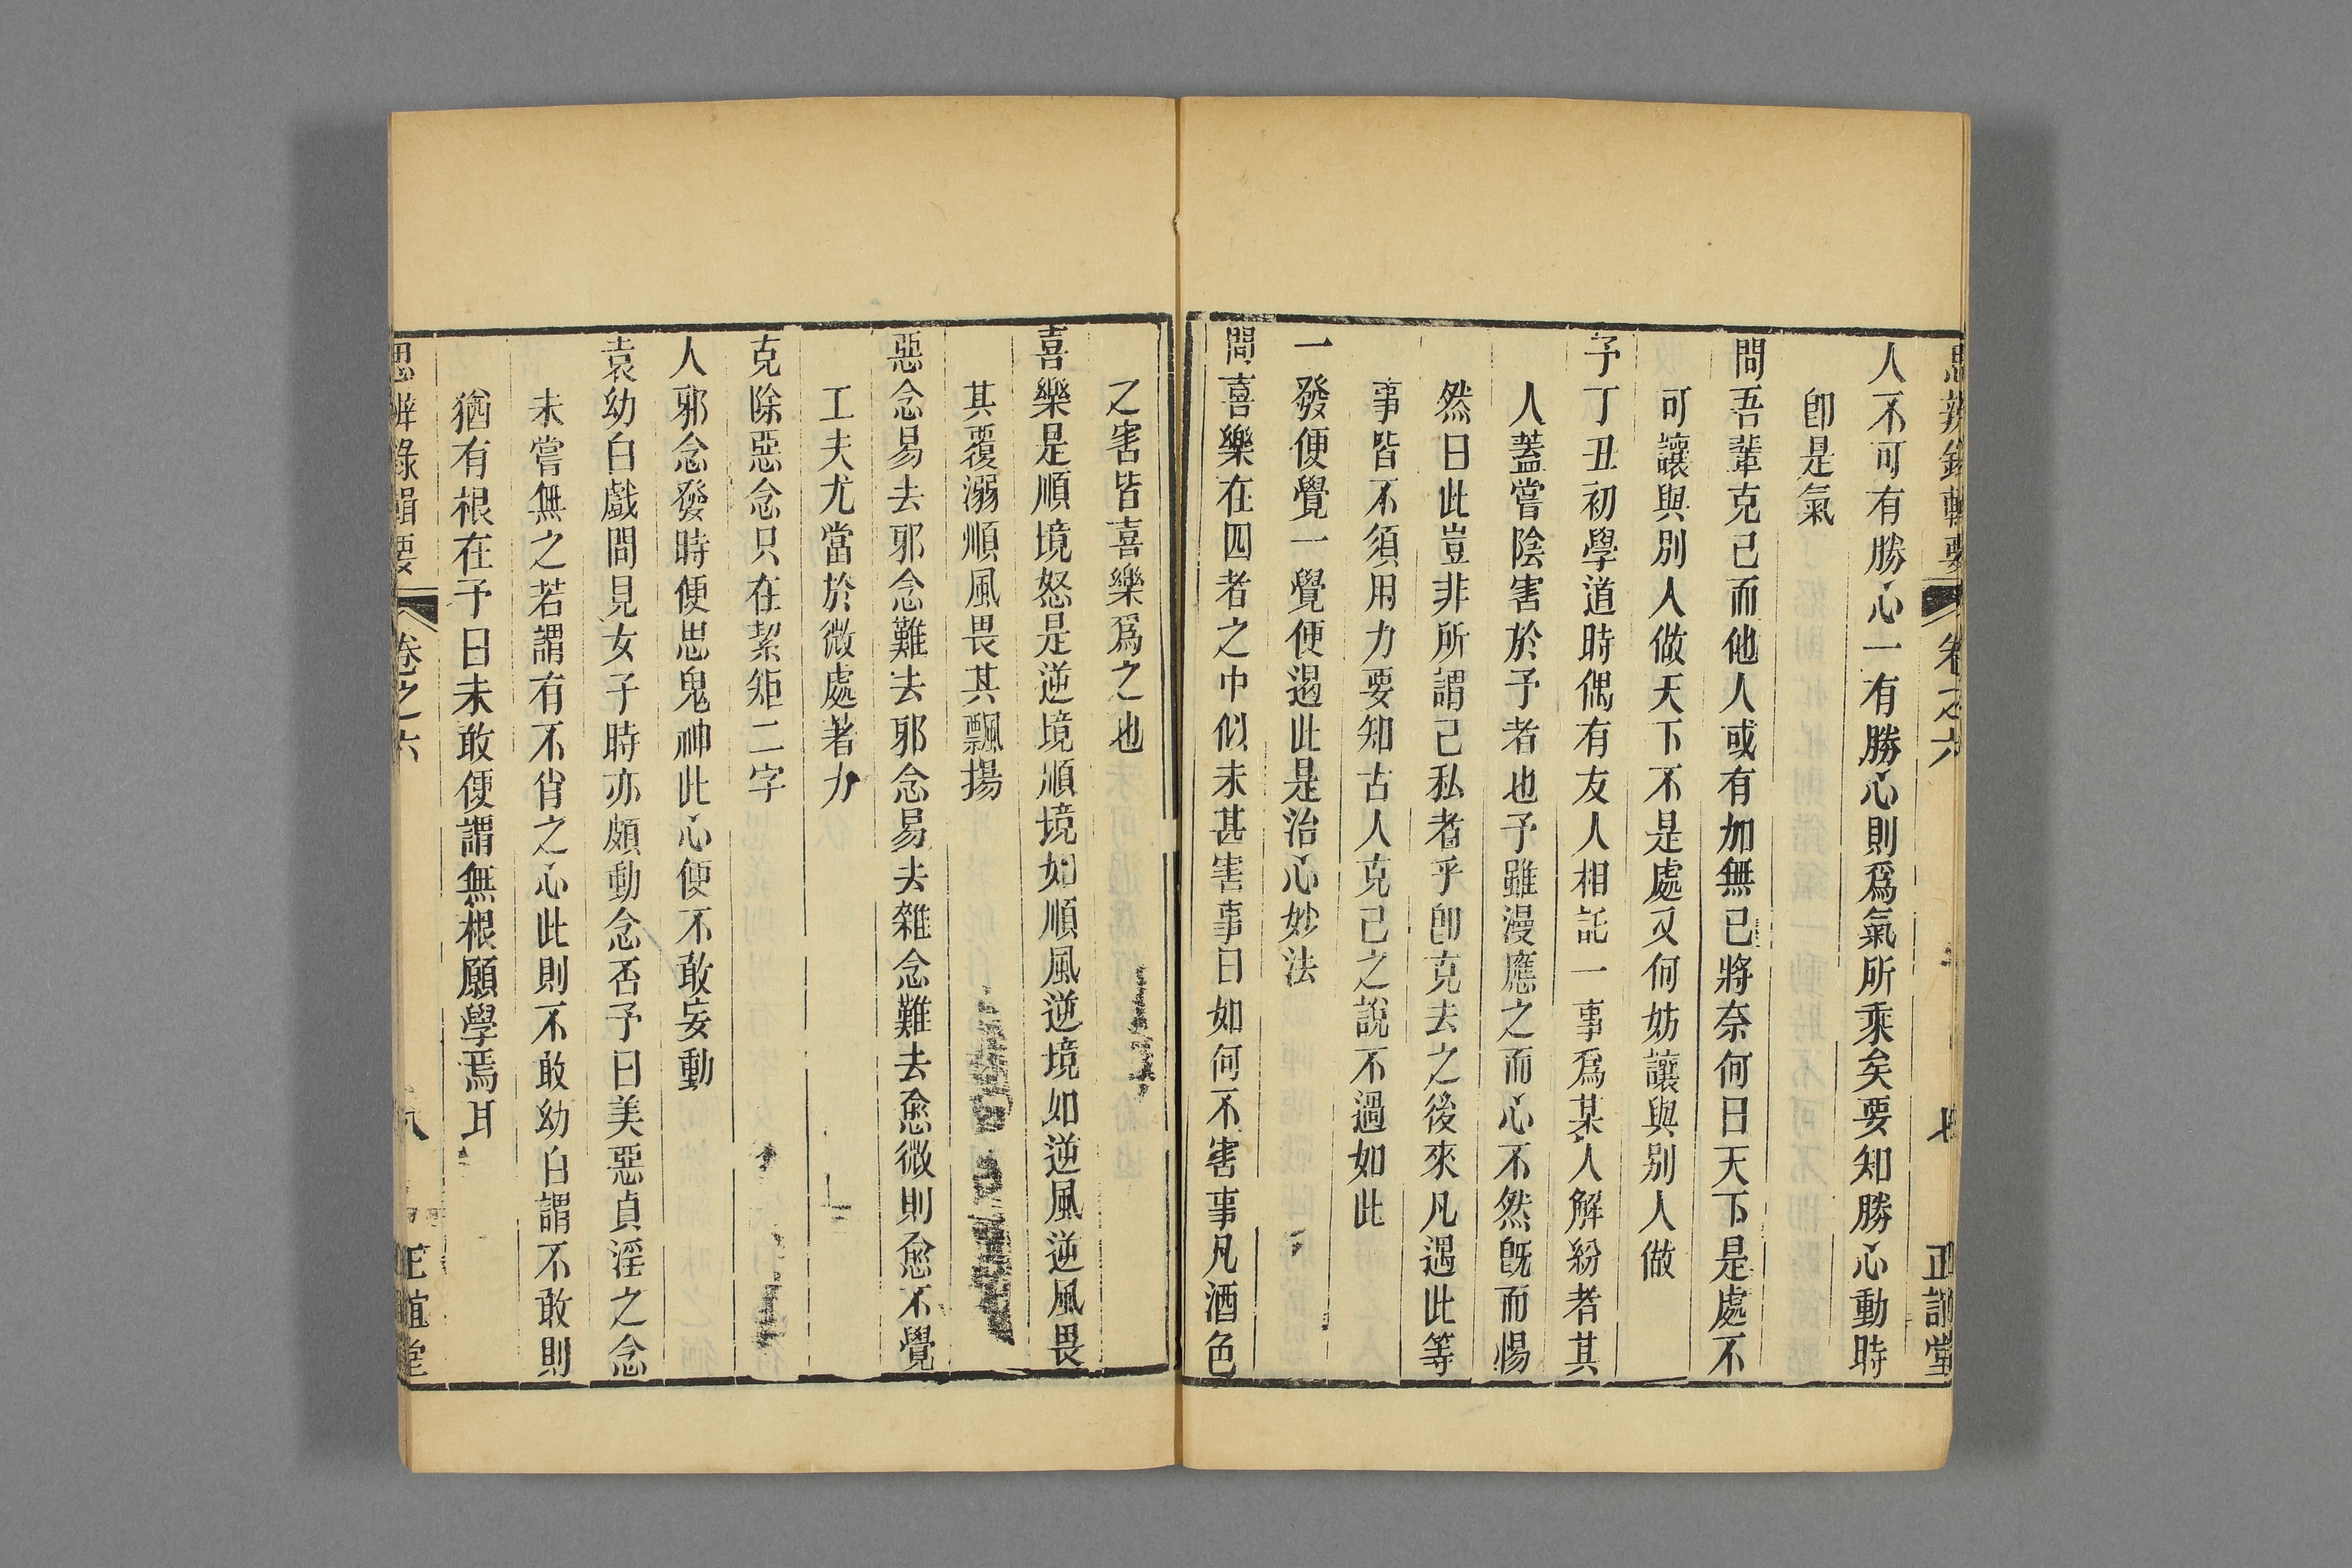 思辨錄輯要 卷之六 七 正誼堂
人不可有勝心一有勝心則爲氣所乘矣要知勝心動時
卽是氣
問吾輩克己而他人或有加無已將奈何曰天下是處不
可讓與別人做天下不是處又何妨讓與别人做
予丁丑初學道時偶有友人相託一事爲某人解紛者其
人蓋嘗陰害於予者也予雖漫應之而心不然旣而惕
然曰此豈非所謂己私者乎卽克去之後來凡遇此等
事皆不須用力要知古人克己之說不過如此
一發便覺一覺便遏此是治心妙法
問喜樂在四者之中似未甚害事曰如何不害事凡酒色
之害皆喜樂爲之也
喜樂是順境怒是逆境順境如順風逆境如逆風逆風畏
其覆溺順風畏其飄揚
惡念易去邪念難去邪念易去雜念難去愈微則愈不覺
工夫尤當於微處著力
克除惡念只在絜矩二字
人邪念發時便思鬼神此心便不敢妄動
袁幼白戲問見女子時亦頗動念否予曰美惡貞淫之念
未嘗無之若謂有不肖之心此則不敢幼白謂不敢則
猶有根在予曰未敢便謂無根願學焉耳
思辨錄輯要 卷之六 八 正誼堂